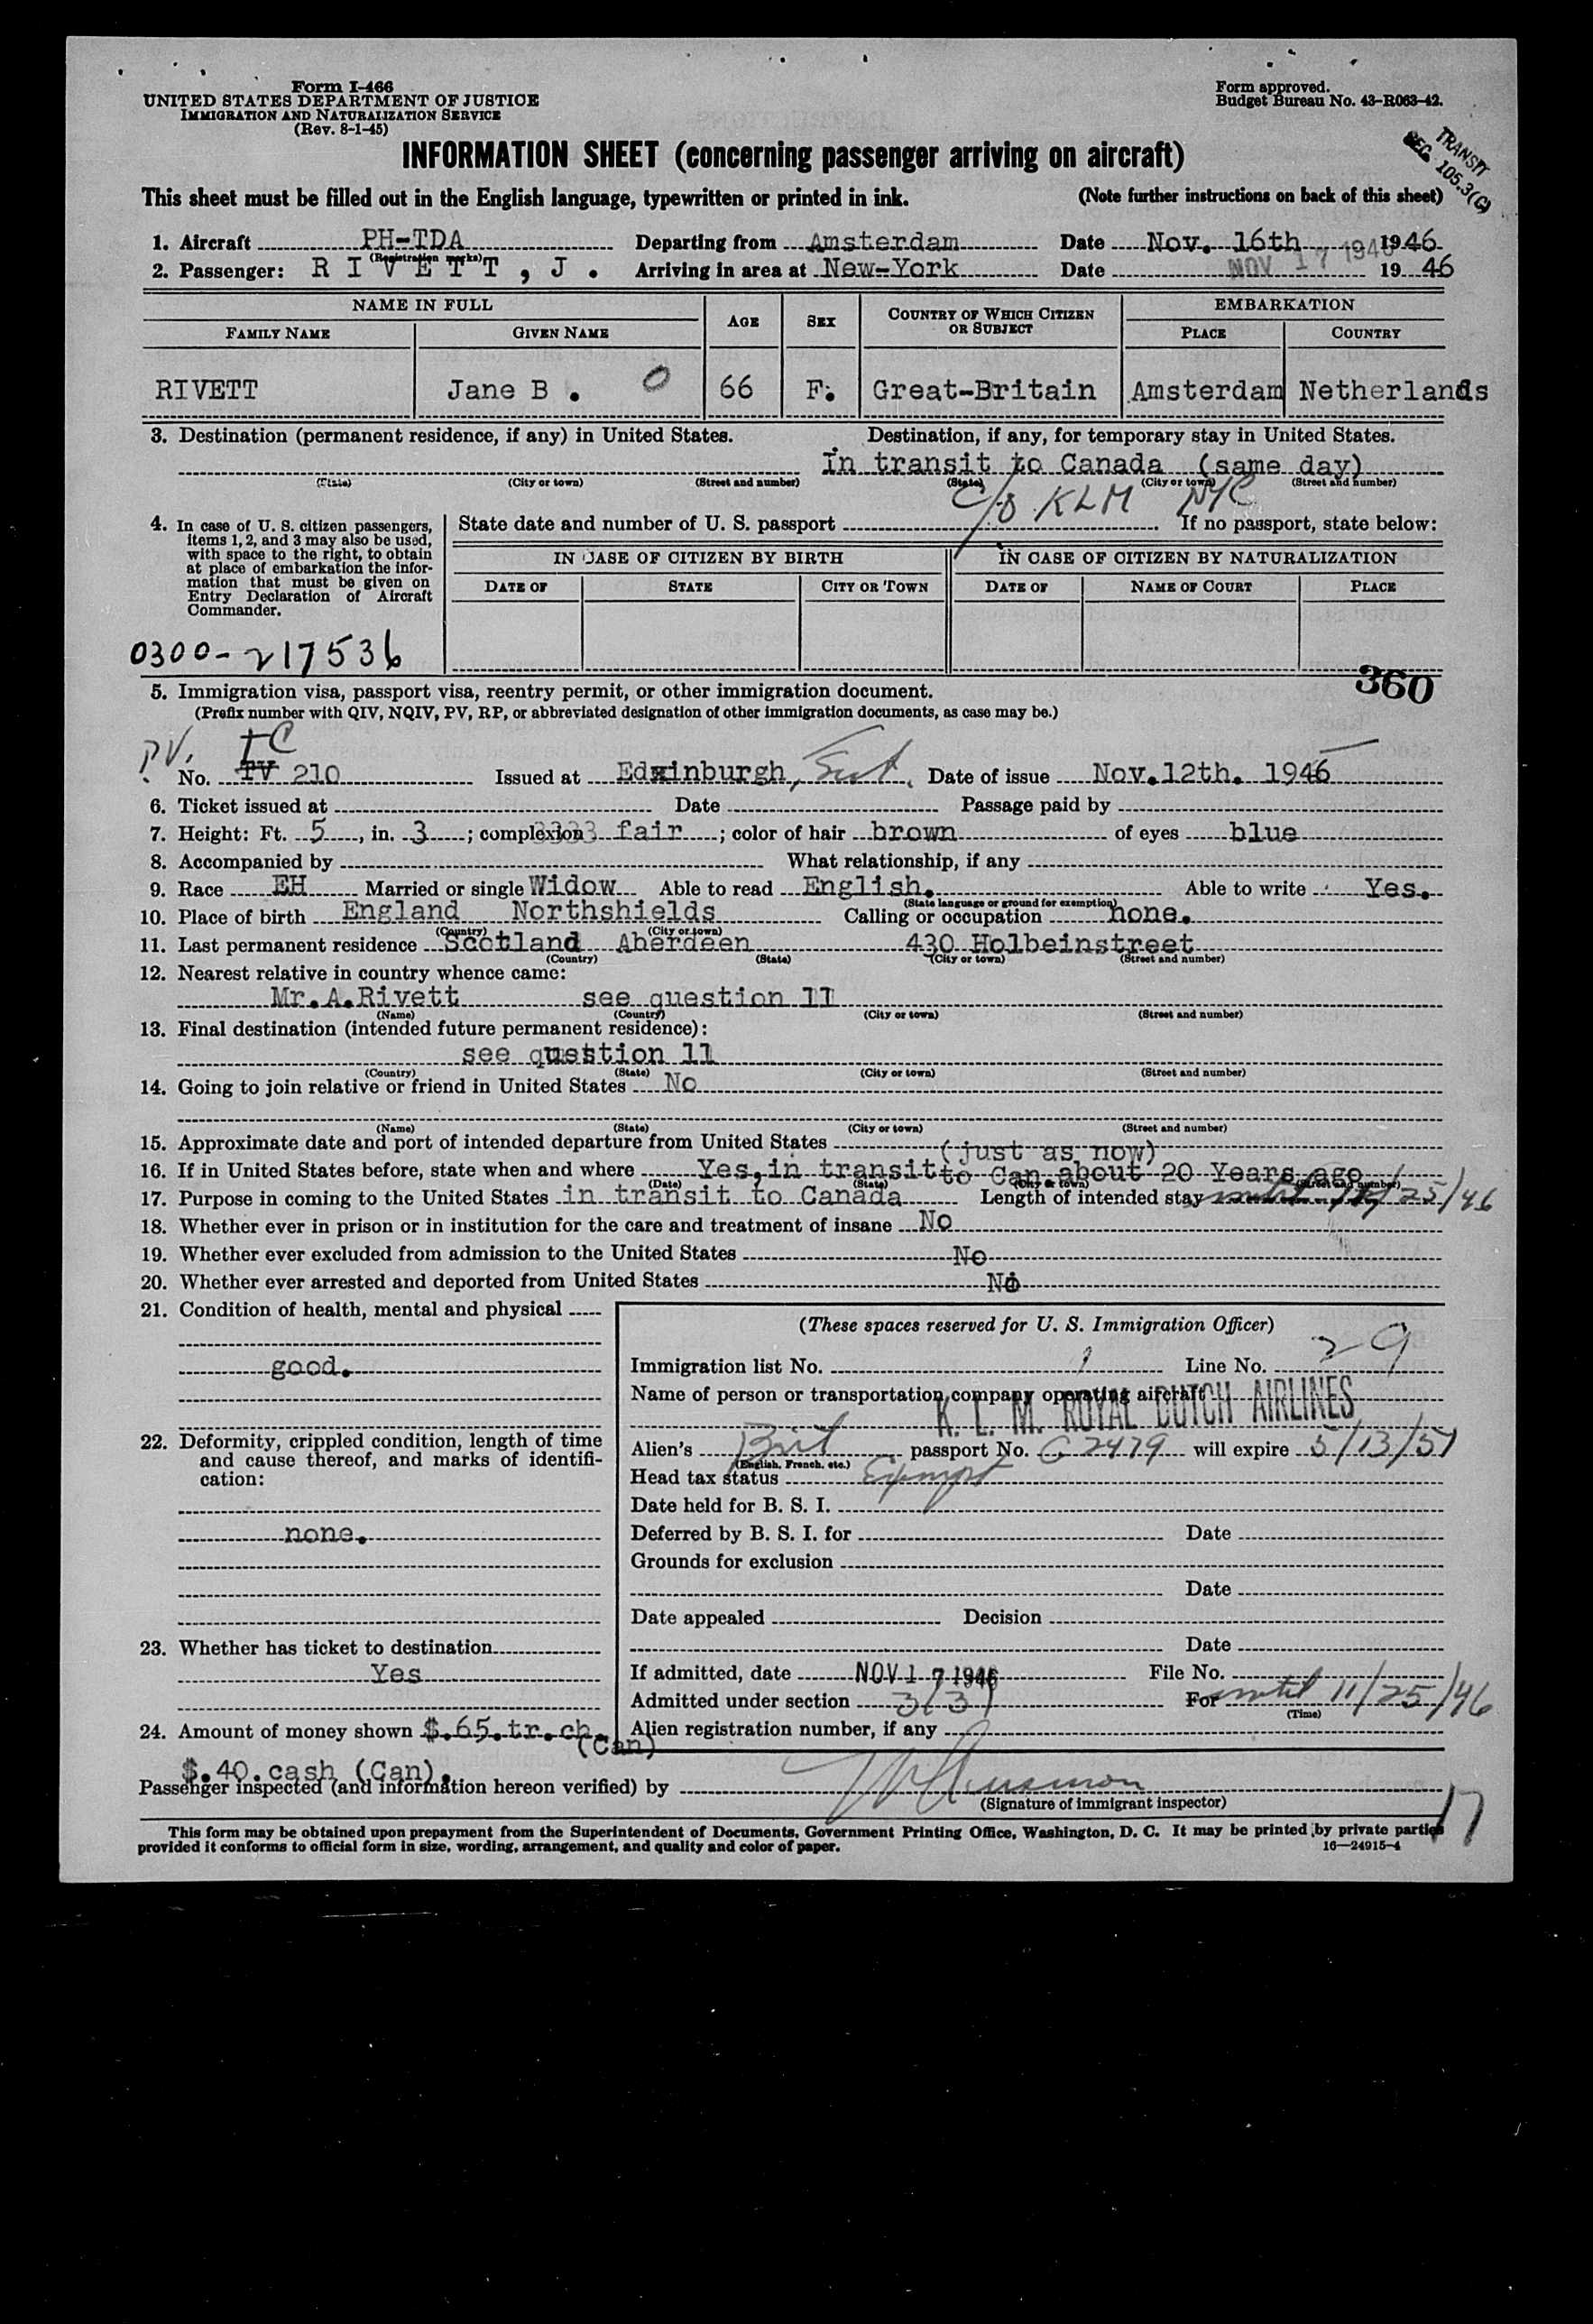 Form I-466
UNITED STATES DEPARTMENT OF JUSTICE
IMMIGRATION AND NATURALIZATION SERVICE
(Rev. 8-1-45)
Form approved.
Budget Bureau No. 43-R063-42.
TRANSIT
SEC. 105.3(G)
INFORMATION SHEET (concerning passenger arriving on aircraft)
This sheet must be filled out in the English language, typewritten or printed in ink. (Note further instructions on back of this sheet)
1. Aircraft PH-TDA Departing from Amsterdam Date Nov. 16th 1946
(Registration marks)
2. Passenger: RIVETT, J. Arriving in area at New-York Date NOV 17 1946 1946
NAME IN FULL AGE SEX COUNTRY OF WHICH CITIZEN OR SUBJECT EMBARKATION
FAMILY NAME GIVEN NAME PLACE COUNTRY
RIVETT Jane B. 0 66 F. Great-Britain Amsterdam Netherlands
3. Destination (permanent residence, if any) in United States. Destination, if any, for temporary stay in United States.
In transit to Canada (same day)
(State) (City or town) (Street and number) (State) (City or town) (Street and number)
c/o KLM NYC
4. In case of U. S. citizen passengers, items 1, 2, and 3 may also be used, with space to the right, to obtain at place of embarkation the information that must be given on Entry Declaration of Aircraft Commander.
State date and number of U. S. passport If no passport, state below:
IN CASE OF CITIZEN BY BIRTH IN CASE OF CITIZEN BY NATURALIZATION
DATE OF STATE CITY OR TOWN DATE OF NAME OF COURT PLACE
0300-217536
360
5. Immigration visa, passport visa, reentry permit, or other immigration document.
(Prefix number with QIV, NQIV, PV, RP, or abbreviated designation of other immigration documents, as case may be.)
PV. TC
No. TV 210 Issued at Edxinburgh, Date of issue Nov.12th. 1946
6. Ticket issued at Date Passage paid by
7. Height: Ft. 5, in. 3; complexion fair; color of hair brown of eyes blue
8. Accompanied by What relationship, if any
9. Race EH Married or single Widow Able to read English. Able to write Yes.
(State language or ground for exemption)
10. Place of birth England Northshields Calling or occupation none.
(Country) (City or town)
11. Last permanent residence Scotland Aberdeen 430 Holbeinstreet
(Country) (State) (City or town) (Street and number)
12. Nearest relative in country whence came:
Mr.A.Rivett see question 11
(Name) (Country) (City or town) (Street and number)
13. Final destination (intended future permanent residence):
see question 11
(Country) (State) (City or town) (Street and number)
14. Going to join relative or friend in United States No
(Name) (State) (City or town) (Street and number)
15. Approximate date and port of intended departure from United States (just as now)
16. If in United States before, state when and where Yes, in transit to Can. about 20 Years ago
(Date) (State) (City or town) (Street and number)
17. Purpose in coming to the United States in transit to Canada Length of intended stay until 11/25/46
18. Whether ever in prison or in institution for the care and treatment of insane No
19. Whether ever excluded from admission to the United States No
20. Whether ever arrested and deported from United States No
21. Condition of health, mental and physical
good.
22. Deformity, crippled condition, length of time and cause thereof, and marks of identification:
none.
23. Whether has ticket to destination
Yes
24. Amount of money shown $.65.tr.ch. (Can)
$.40.cash (Can).
(These spaces reserved for U. S. Immigration Officer)
Immigration list No. 1 Line No. 29
Name of person or transportation company operating aircraft
K. L. M. ROYAL DUTCH AIRLINES
Alien's Brit passport No. C 2479 will expire 5/13/51
(English, French, etc.)
Head tax status Exempt
Date held for B. S. I.
Deferred by B. S. I. for Date
Grounds for exclusion
Date
Date appealed Decision
Date
If admitted, date NOV 17 1946 File No.
Admitted under section 3/3 For until 11/25/46
(Time)
Alien registration number, if any
Passenger inspected (and information hereon verified) by
(Signature of immigrant inspector)
17
This form may be obtained upon prepayment from the Superintendent of Documents, Government Printing Office, Washington, D. C. It may be printed by private parties
provided it conforms to official form in size, wording, arrangement, and quality and color of paper. 16—24915-4